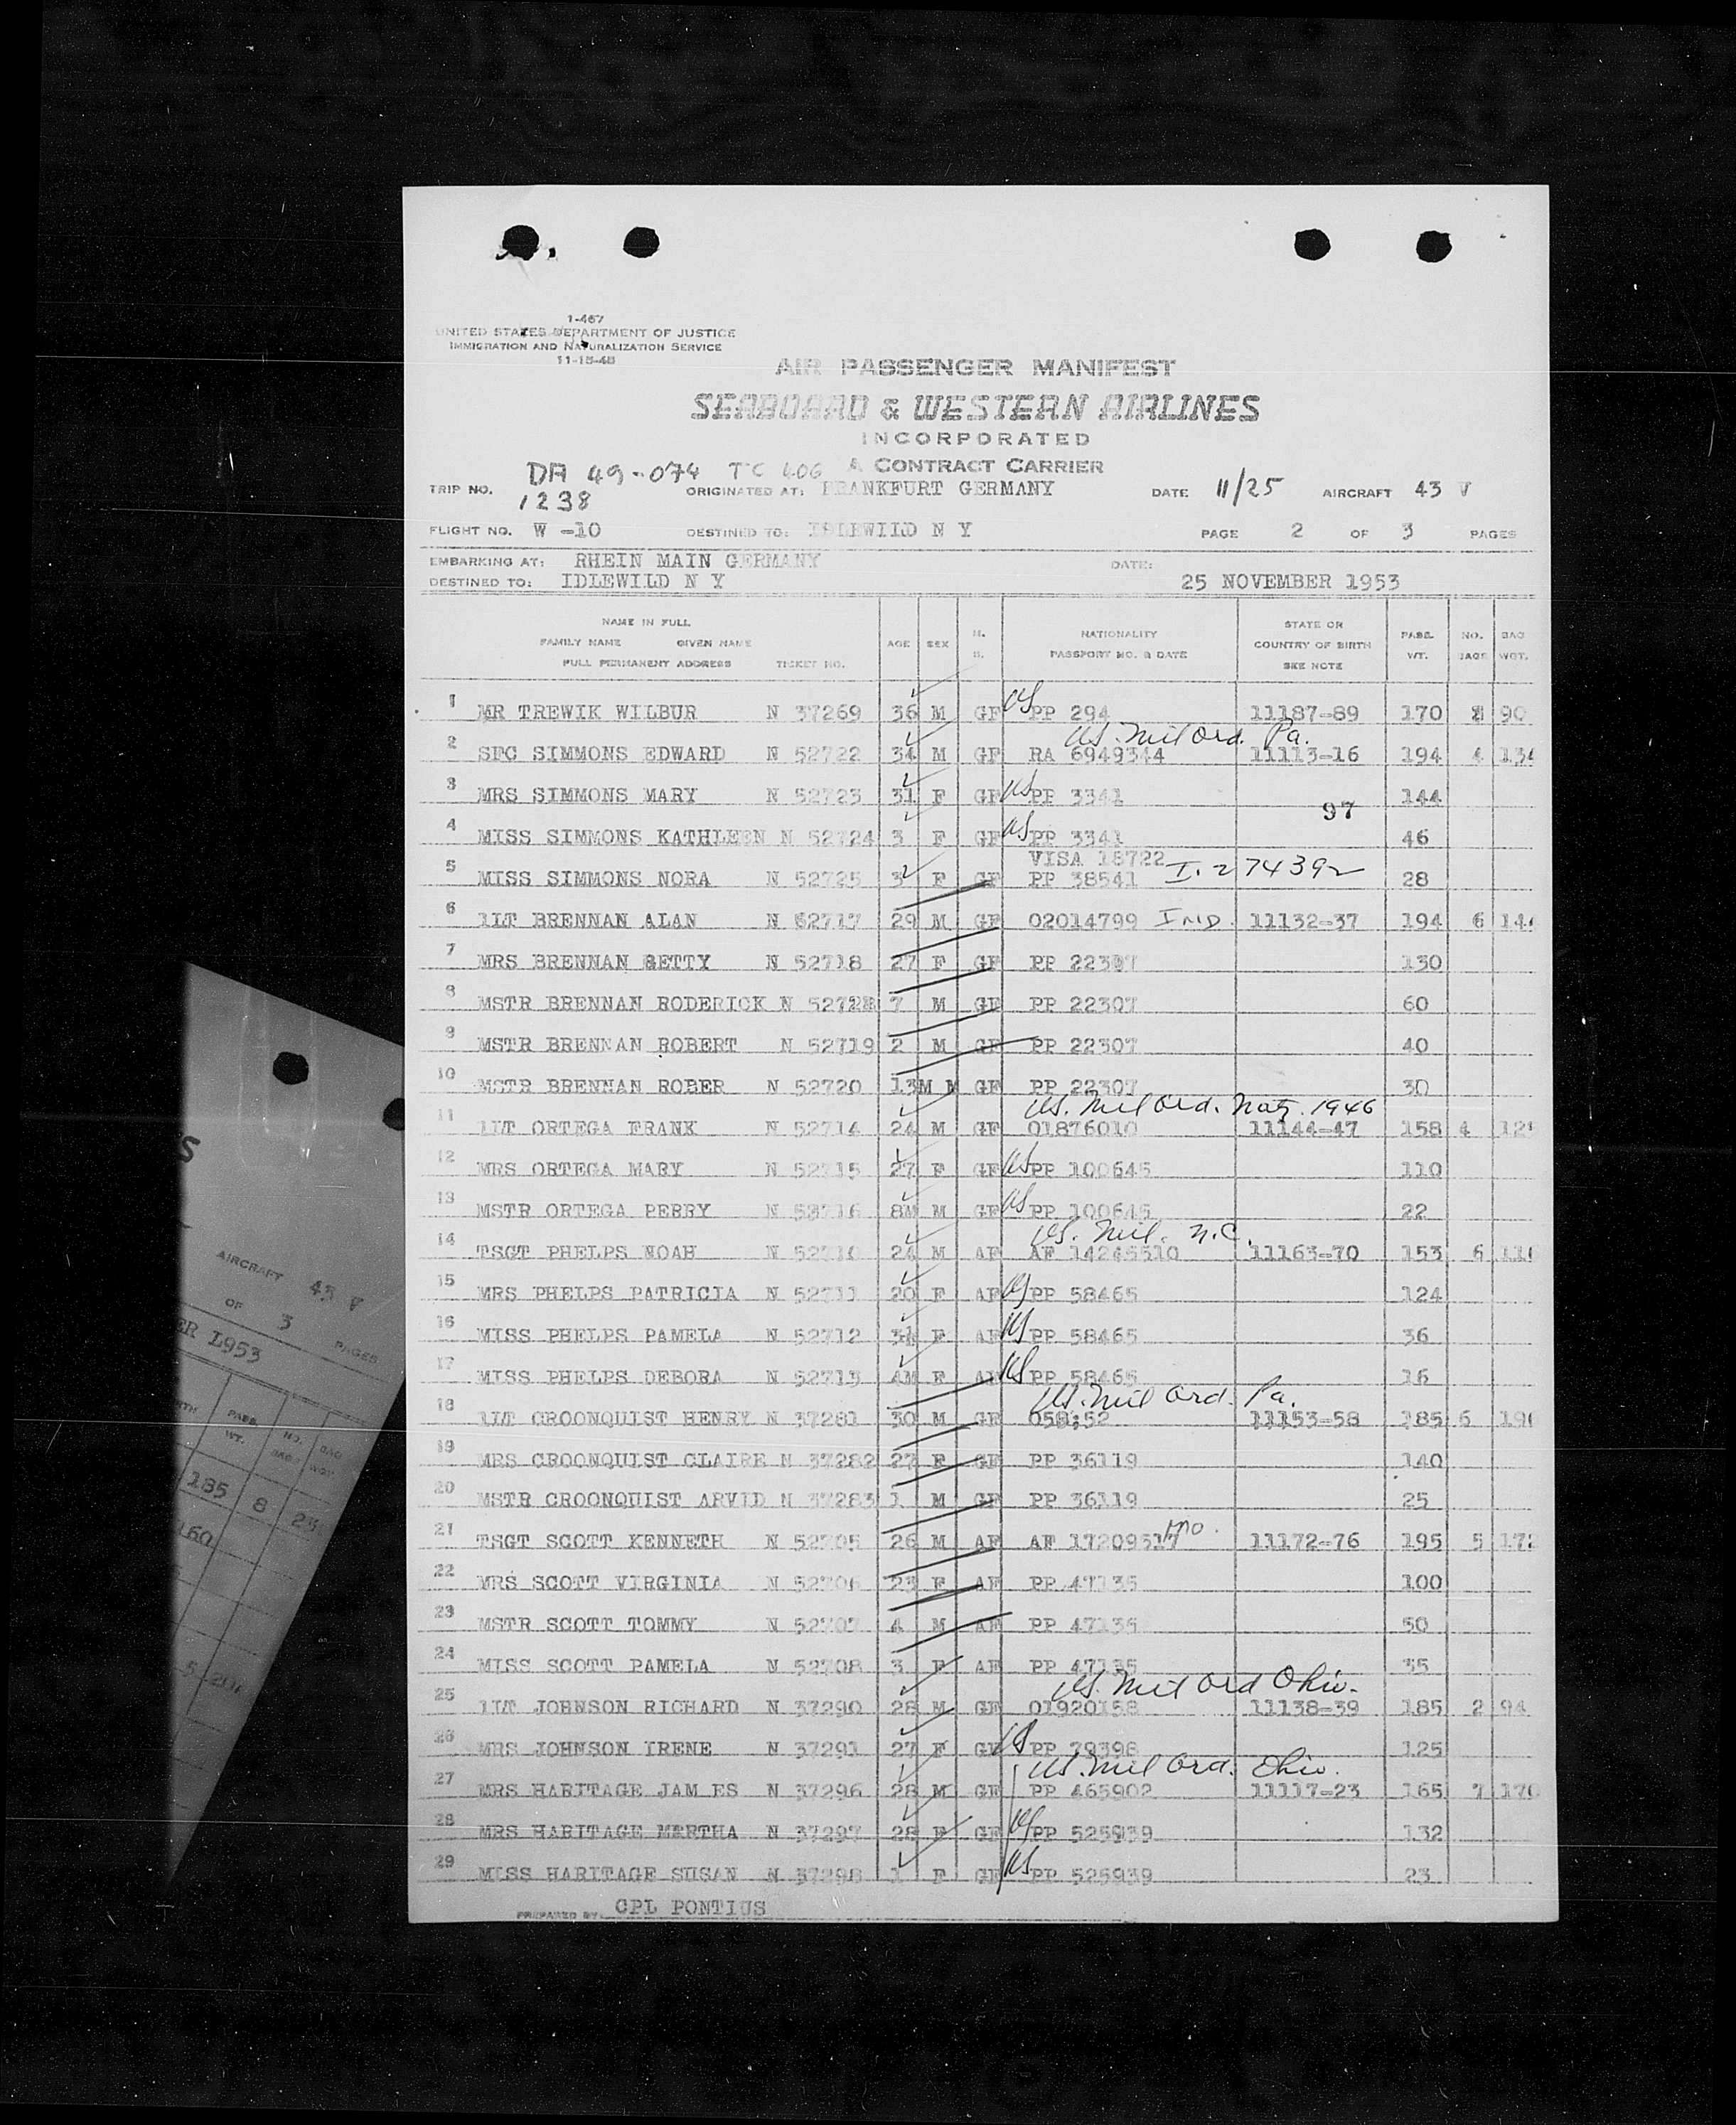 1-467
UNITED STATES DEPARTMENT OF JUSTICE
IMMIGRATION AND NATURALIZATION SERVICE
11-15-48
AIR PASSENGER MANIFEST
SEABOARD & WESTERN AIRLINES
INCORPORATED
A CONTRACT CARRIER
DA 49-074 TC 406
TRIP NO. 1238 ORIGINATED AT: FRANKFURT GERMANY DATE 11/25 AIRCRAFT 43 V
FLIGHT NO. W -10 DESTINED TO: IDLEWILD N Y PAGE 2 OF 3 PAGES
EMBARKING AT: RHEIN MAIN GERMANY DATE:
DESTINED TO: IDLEWILD N Y 25 NOVEMBER 1953
NAME IN FULL
FAMILY NAME GIVEN NAME
FULL PERMANENT ADDRESS TICKET NO.
AGE SEX
NATIONALITY
PASSPORT NO. & DATE
STATE OR
COUNTRY OF BIRTH
SEE NOTE
PASS. WT.
NO. BAGS
BAG WGT.
1 MR TREWIK WILBUR N 37269 36 M GF US PP 294 11187-89 170 90
US. Mil Ord. Pa.
2 SFC SIMMONS EDWARD N 52722 34 M GF RA 6949344 11113-16 194 4 134
3 MRS SIMMONS MARY N 52723 31 F GF US PP 3341 144
97
4 MISS SIMMONS KATHLEEN N 52724 3 F GF US PP 3341 46
VISA 18722
5 MISS SIMMONS NORA N 52725 3 F GF PP 38541 I. 274392 28
6 1LT BRENNAN ALAN N 52717 29 M GF 02014799 IND. 11132-37 194 6 144
7 MRS BRENNAN BETTY N 52718 27 F GF PP 22307 130
8 MSTR BRENNAN RODERICK N 7 M GF PP 22307 60
9 MSTR BRENNAN ROBERT N 52719 2 M GF PP 22307 40
10 MSTR BRENNAN ROBER N 52720 13M M GF PP 22307 30
US. Mil Ord. Natz. 1946
11 1LT ORTEGA FRANK N 52714 24 M GF 01876010 11144-47 158 4
12 MRS ORTEGA MARY N 52715 27 F GF US PP 100645 110
13 MSTR ORTEGA PERRY N 52716 8M M GF US PP 100645 22
US. Mil. N.C.
14 TSGT PHELPS NOAH N 52710 24 M AF AF 14245510 11163-70 153 6
15 MRS PHELPS PATRICIA N 52711 20 F AF US PP 58465 124
16 MISS PHELPS PAMELA N 52712 F AF US PP 58465 36
17 MISS PHELPS DEBORA N 52713 4M F AF US PP 58465 16
US. Mil Ord. Pa.
18 1LT CROONQUIST HENRY N 37281 30 M GF 11153-58 185 6
19 MRS CROONQUIST CLAIRE N 37282 27 F GF PP 36119 140
20 MSTR CROONQUIST ARVID N 37283 1 M GF PP 36119 25
21 TSGT SCOTT KENNETH N 52705 26 M AF AF 17209517 Mo. 11172-76 195 5 172
22 MRS SCOTT VIRGINIA N 52706 23 F AF PP 47135 100
23 MSTR SCOTT TOMMY N 52707 4 M AF PP 47135 50
24 MISS SCOTT PAMELA N 52708 3 F AF PP 47135 35
US. Mil Ord Ohio.
25 1LT JOHNSON RICHARD N 37290 28 M GF 01920158 11138-39 185 2 94
26 MRS JOHNSON IRENE N 37291 27 F GF US PP 79398 125
US. Mil Ord. Ohio.
27 MRS HARITAGE JAM ES N 37296 28 M GF PP 465902 11117-23 165 7 170
28 MRS HARITAGE MERTHA N 37297 28 F GF US PP 525939 132
29 MISS HARITAGE SUSAN N 37298 1 F GF US PP 525939 23
PREPARED BY: CPL PONTIUS
AIRCRAFT 43 V
OF 3 PAGES
ER 1953
PASS. WT.
NO. BAGS
BAG WGT.
185 8
160